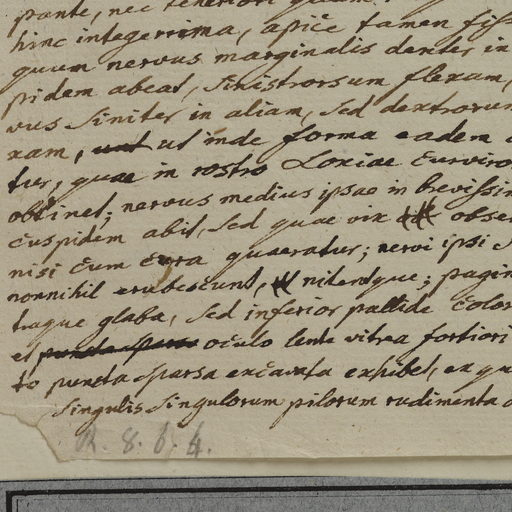 ponte, nec teneriori quam
hinc integerrima, apice tamen fiss
quum nervus marginalis denter in
pidem abeat, sinistrorsum flexam,
vus siniter in aliam, sed dextrorum
xam, ut inde forma eadem
tur, quae in rostro Loxiae curviro
obtinet; nervus medius ipse in brevissim
cuspidem abit, sed quae vix obser
nisi cum cura quaeratur; nervi ipsi s
nonnihil erubescunt, nitentque; pagin
traque glaba, sed inferior pallide color
et oculo lente vitrea fortiori
to puncta sparsa excavata exhibet, ex qu
singulis singulorum pilorum rudimenta
R. 8. b. 4.